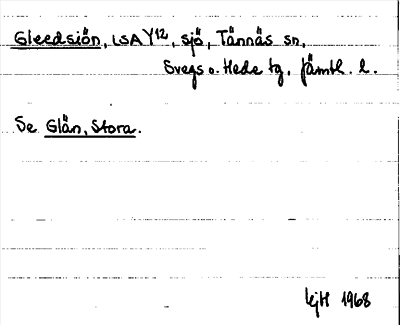 Gleedsiön, LSA Y12, sjö, Tännäs sn,
Svegs o. Hede tg, Jämtl. l.
Se Glän, Stora.
kjH 1968